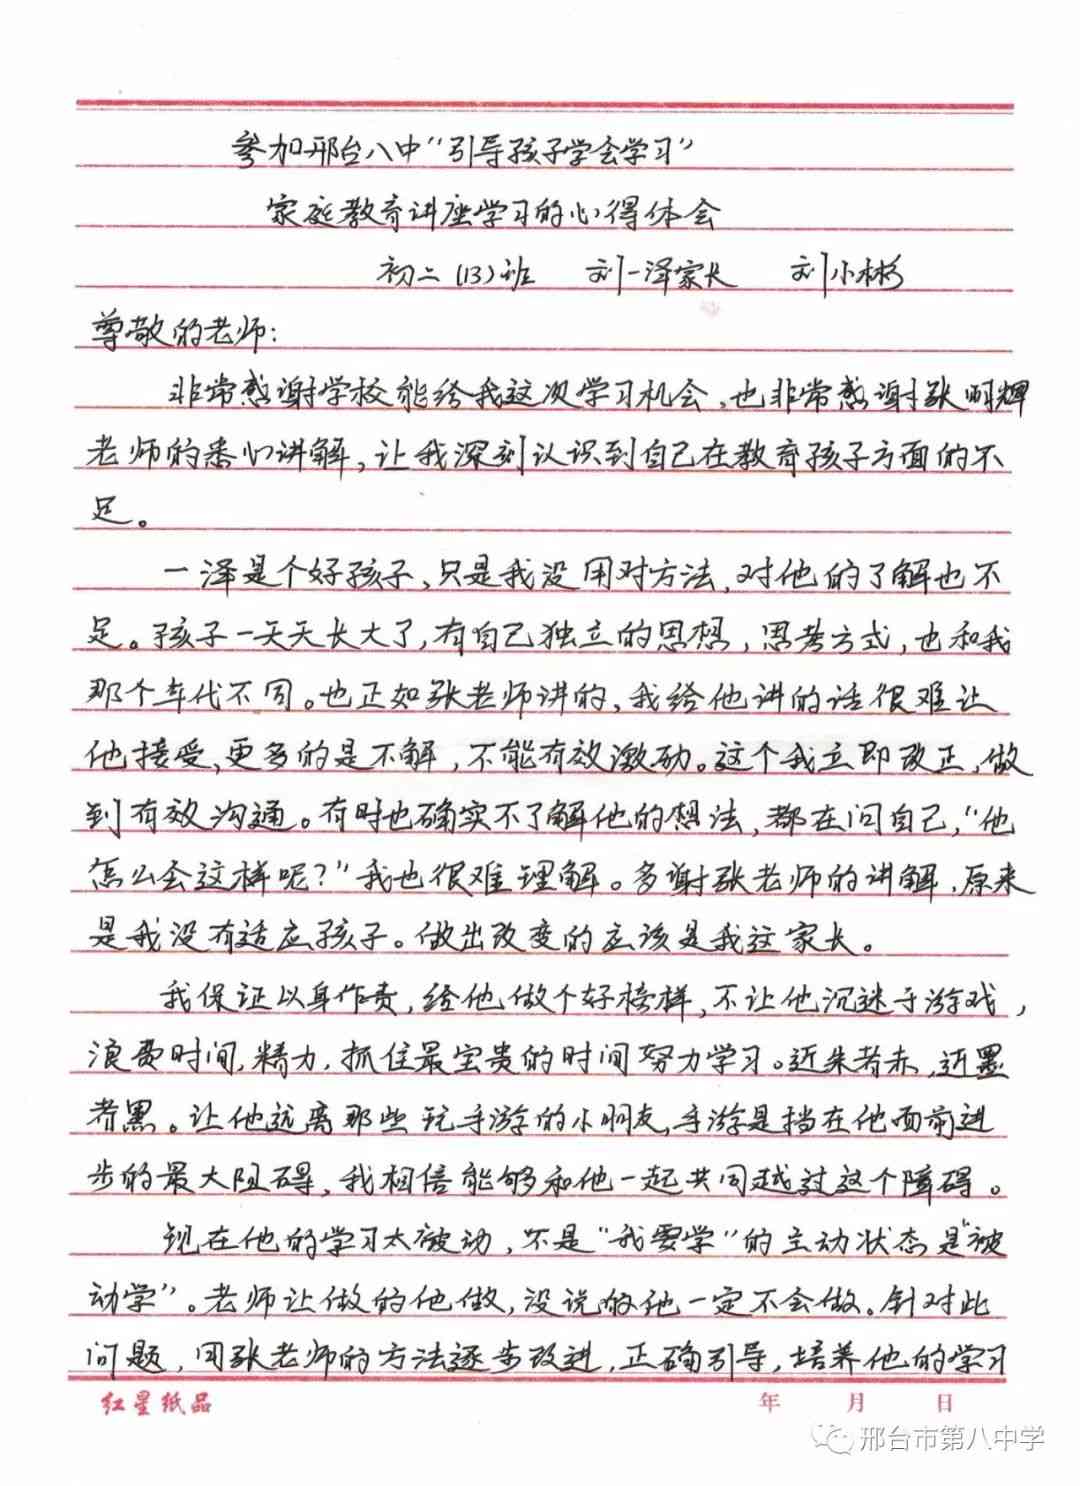 参加邢台八中“引导孩子学会学习”
家庭教育讲座学习的心得体会
初二(13)班 刘一泽家长 刘小彬
尊敬的老师:
非常感谢学校能给我这次学习机会,也非常感谢张明辉
老师的悉心讲解,让我深刻认识到自己在教育孩子方面的不
足。
一泽是个好孩子,只是我没用对方法,对他的了解也不
足。孩子一天天长大了,有自己独立的思想,思考方式,也和我
那个年代不同。也正如张老师讲的,我给他讲的话很难让
他接受,更多的是不解,不能有效激励。这个我立即改正,做
到有效沟通。有时也确实不了解他的想法,都在问自己,“他
怎么会这样呢?”我也很难理解。多谢张老师的讲解,原来
是我没有适应孩子。做出改变的应该是我这家长。
我保证以身作责,给他做个好榜样,不让他沉迷于游戏,
浪费时间,精力,抓住最宝贵的时间努力学习。近朱者赤,近墨
者黑。让他远离那些玩手游的小朋友,手游是挡在他面前进
步的最大阻碍,我相信能够和他一起共同越过这个障碍。
现在他的学习太被动,不是“我要学”的主动状态是“被
动学”。老师让做的他做,没说的他一定不会做。针对此
问题,用张老师的方法逐步改进,正确引导,培养他的学习
红星纸品 年 月 日
邢台市第八中学